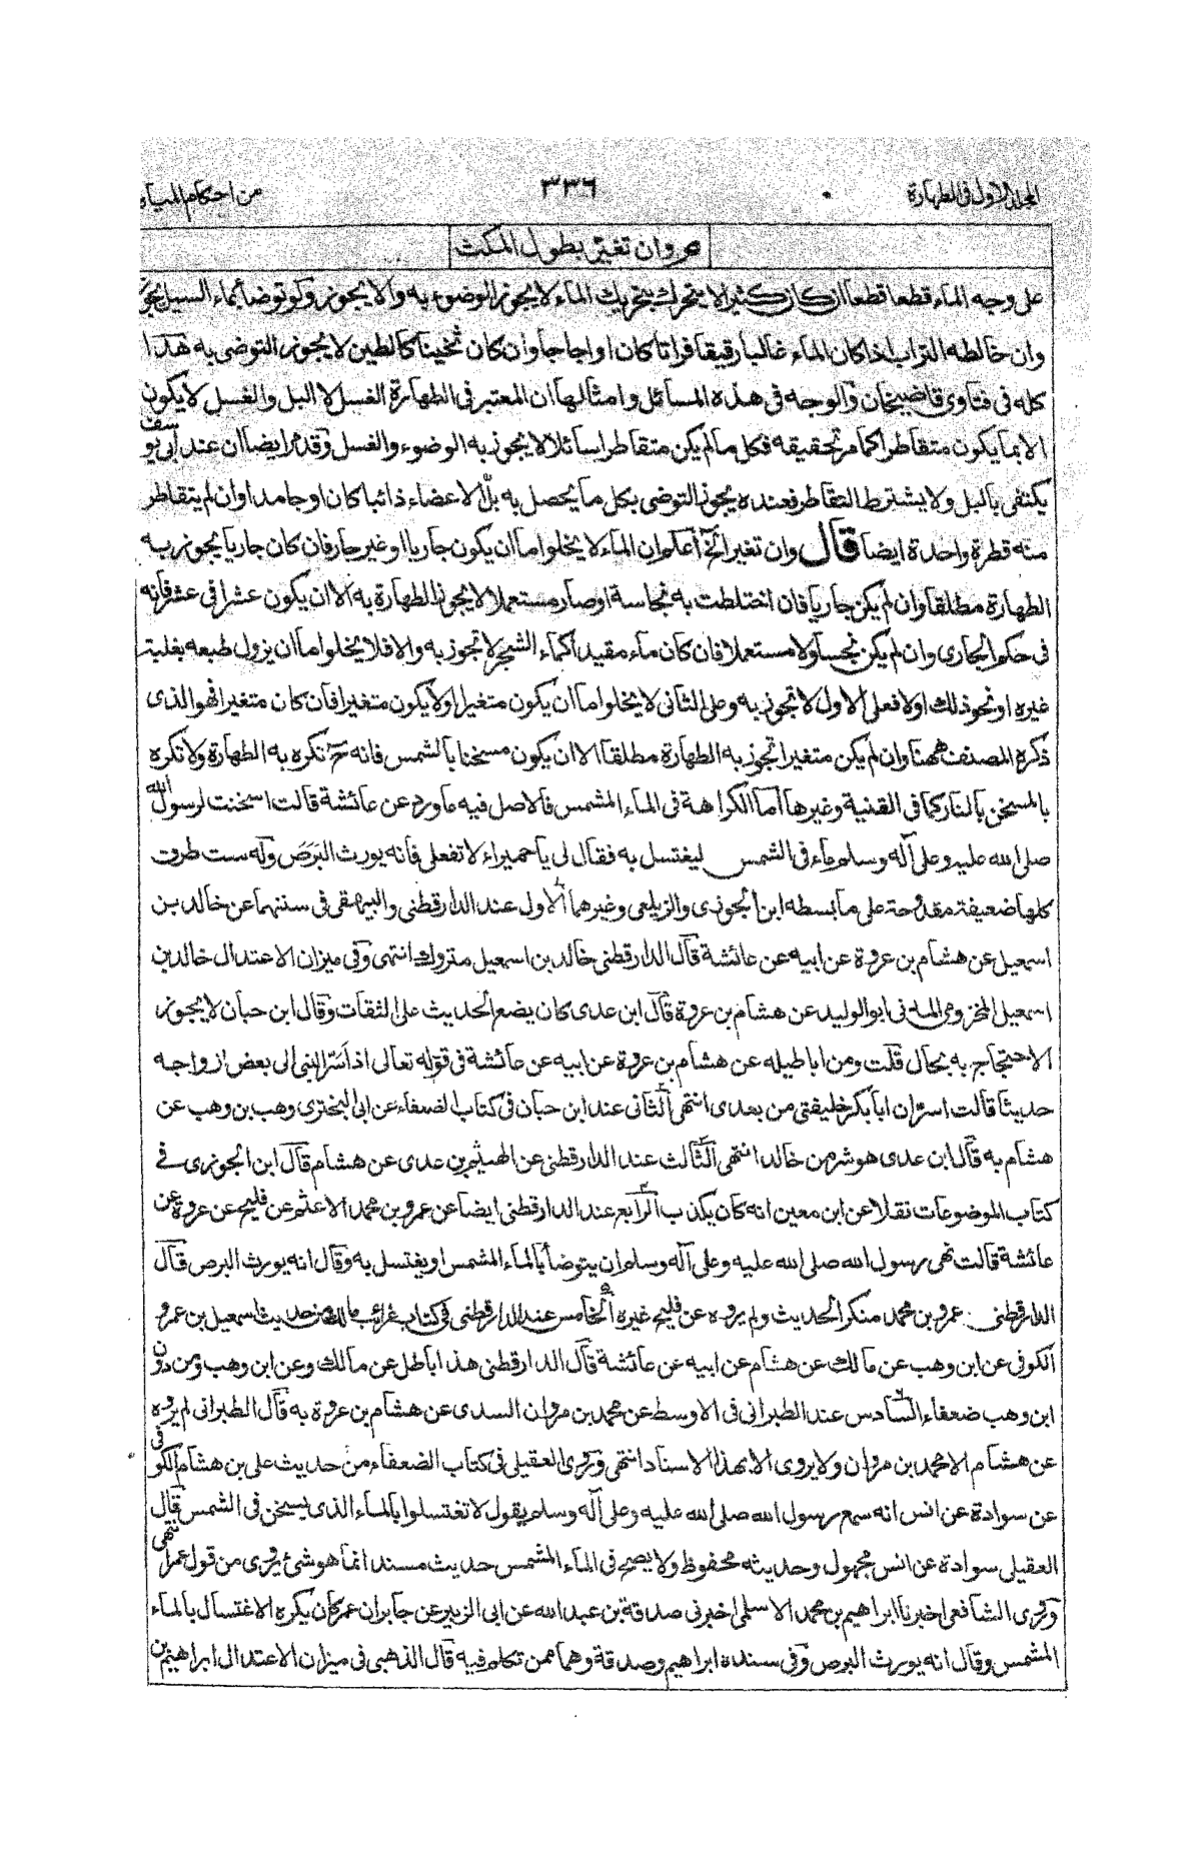 المجلد الاول فى الطهارة ٣٣٦ من احكام المياه
ص وان تغير بطول المكث
على وجه الماء قطعا قطعا ان كان كثيرا لا يتحرك بتحريك الماء لا يجوز الوضوء به والا يجوز ولو توضأ بماء السيل يجوز
وان خالطه التراب اذا كان الماء غالبا رقيقا فراتا كان او اجاجا وان كان ثخينا كالطين لا يجوز التوضى به هذا
كله فى فتاوى قاضيخان والوجه فى هذه المسائل وامثالها ان المعتبر فى الطهارة الغسل لا البل والغسل لا يكون
الا بما يكون متقاطرا كما مر تحقيقه فكل ما لم يكن متقاطرا سائلا لا يجوز به الوضوء والغسل وقد مر ايضا ان عند ابى يوسف
يكتفى بالبل ولا يشترط التقاطر فعنده يجوز التوضى بكل ما يحصل به بل الاعضاء ذائبا كان او جامدا وان لم يتقاطر
منه قطرة واحدة ايضا قال وان تغير الخ اعلم ان الماء لا يخلوا ما ان يكون جاريا او غير جار فان كان جاريا يجوز به
الطهارة مطلقا وان لم يكن جاريا فان اختلطت به نجاسة او صار مستعملا لا يجوز الطهارة به الا ان يكون عشرا فى عشر فانه
فى حكم الجارى وان لم يكن نجسا ولا مستعملا فان كان ماء مقيدا كماء الشجر لا تجوز به والا فلا يخلوا ما ان يزول طبعه بغلبة
غيره او نحو ذلك اولا فعلى الاول لا تجوز به وعلى الثانى لا يخلوا ما ان يكون متغيرا اولا يكون متغيرا فان كان متغيرا فهو الذى
ذكره المصنف ههنا وان لم يكن متغيرا تجوز به الطهارة مطلقا الا ان يكون مسخنا بالشمس فانه ح تكره به الطهارة ولا تكره
بالمسخن بالنار كما فى القنية وغيرها اما الكراهة فى الماء المشمس فالاصل فيه ما ورد عن عائشة قالت اسخنت لرسول الله
صلى الله عليه وعلى آله وسلم ماء فى الشمس ليغتسل به فقال لى يا حميراء لا تفعلى فانه يورث البرص وله ست طرق
كلها ضعيفة مقدوحة على ما بسطه ابن الجوزى والزيلعى وغيرهما الاول عند الدارقطنى والبيهقى فى سننهما عن خالد بن
اسمعيل عن هشام بن عروة عن ابيه عن عائشة قال الدارقطنى خالد بن اسمعيل متروك انتهى وفى ميزان الاعتدال خالد بن
اسمعيل المخزومى المدنى ابو الوليد عن هشام بن عروة قال ابن عدى كان يضع الحديث على الثقات وقال ابن حبان لا يجوز
الاحتجاج به بحال قلت ومن اباطيله عن هشام بن عروة عن ابيه عن عائشة فى قوله تعالى اذ اسر النبى الى بعض ازواجه
حديثا قالت اسر ان ابا بكر خليفتى من بعدى انتهى الثانى عند ابن حبان فى كتاب الضعفاء عن ابى البخترى وهب بن وهب عن
هشام به قال ابن عدى هو شر من خالد انتهى الثالث عند الدارقطنى عن الهيثم بن عدى عن هشام قال ابن الجوزى فى
كتاب الموضوعات نقلا عن ابن معين انه كان يكذب الرابع عند الدارقطنى ايضا عن عمرو بن محمد الاعثم عن فليح عن عروة عن
عائشة قالت نهى رسول الله صلى الله عليه وعلى آله وسلم ان يتوضأ بالماء المشمس او يغتسل به وقال انه يورث البرص قال
الدارقطنى عمرو بن محمد منكر الحديث ولم يروه عن فليح غيره الخامس عند الدارقطنى فى كتاب غرائب مالك من حديث اسمعيل بن عمرو
الكوفى عن ابن وهب عن مالك عن هشام عن ابيه عن عائشة قال الدارقطنى هذا باطل عن مالك وعن ابن وهب ومن دون
ابن وهب ضعفاء السادس عند الطبرانى فى الاوسط عن محمد بن مروان السدى عن هشام بن عروة به قال الطبرانى لم يروه
عن هشام الا محمد بن مروان ولا يروى الا بهذا الاسناد انتهى وروى العقيلى فى كتاب الضعفاء من حديث على بن هشام الكوفى
عن سوادة عن انس انه سمع رسول الله صلى الله عليه وعلى آله وسلم يقول لا تغتسلوا بالماء الذى يسخن فى الشمس قال
العقيلى سوادة عن انس مجهول وحديثه محفوظ ولا يصح فى الماء المشمس حديث مسند انما هو شئ يروى من قول عمر انتهى
وروى الشافعى اخبرنا ابراهيم بن محمد الاسلمى اخبرنى صدقة بن عبد الله عن ابى الزبير عن جابر ان عمر كان يكره الاغتسال بالماء
المشمس وقال انه يورث البرص وفى سنده ابراهيم وصدقة وهما ممن تكلم فيه قال الذهبى فى ميزان الاعتدال ابراهيم بن